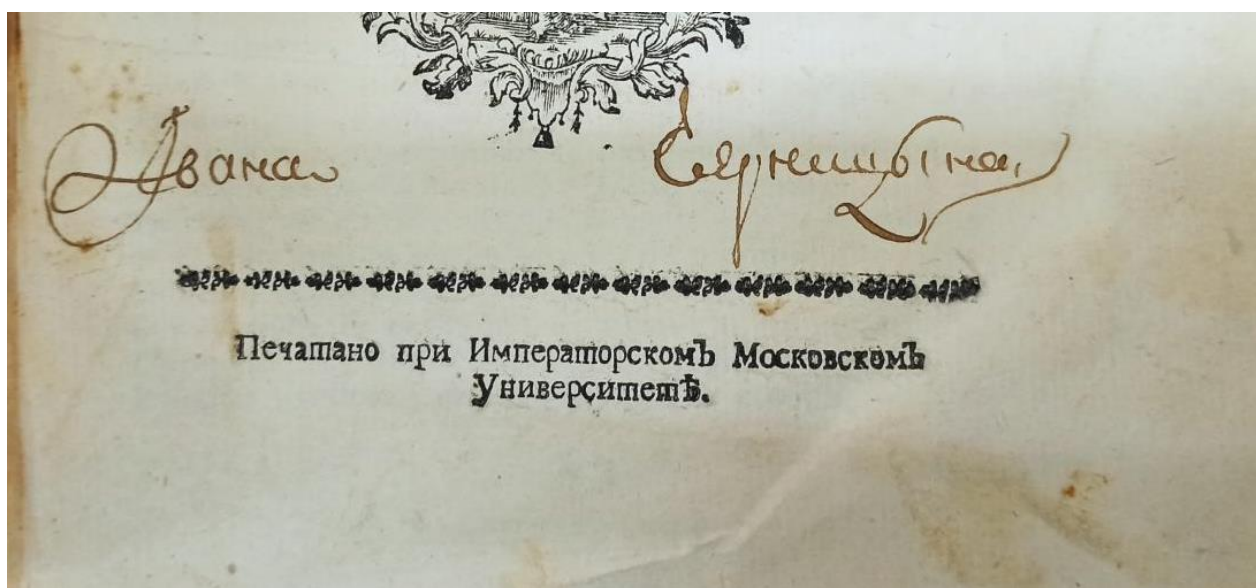 Ивана Серницына
Печатано при Императорскомъ Московскомъ
Университетѣ.